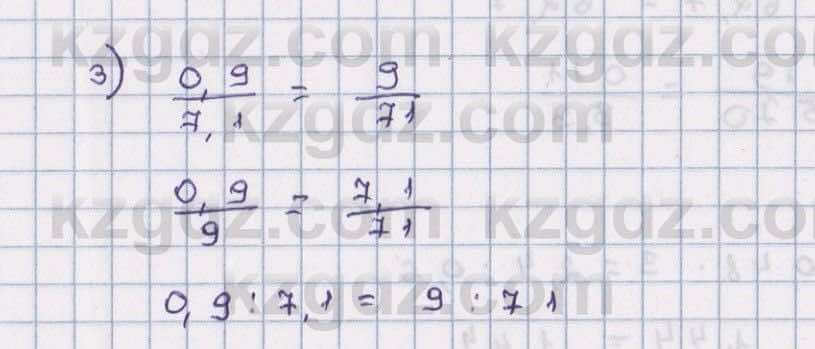 kzgdz.com kzgdz.com
3) 0,9/7,1 = 9/71
kzgdz.com
0,9/9 = 7,1/71
kzgdz.com kzgdz.com
0,9 : 7,1 = 9 : 71
kzgdz.com